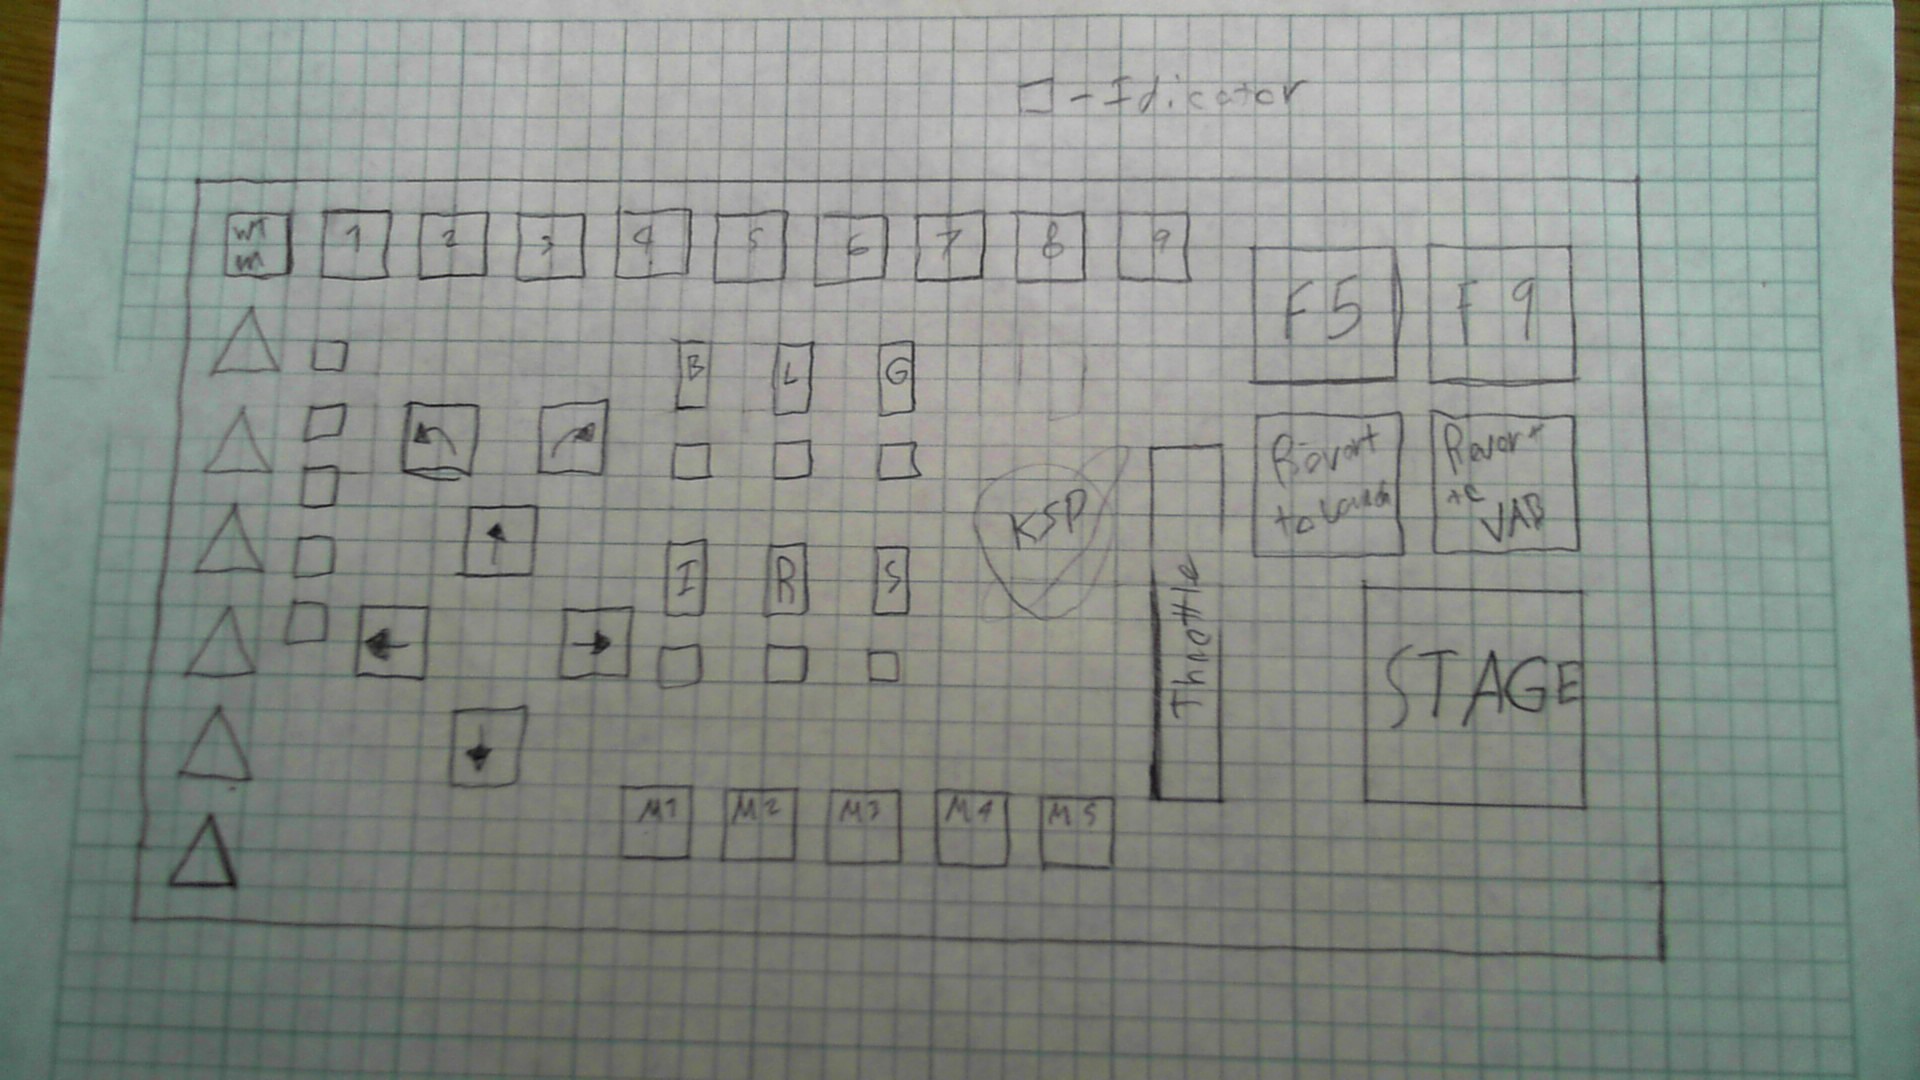 - Idicator
1 2 3 4 5 6 7 8 9
F5 F9
B L G
Revert
to
Revert
to
VAB
KSP
I R S
Throttle
STAGE
M1 M2 M3 M4 M5